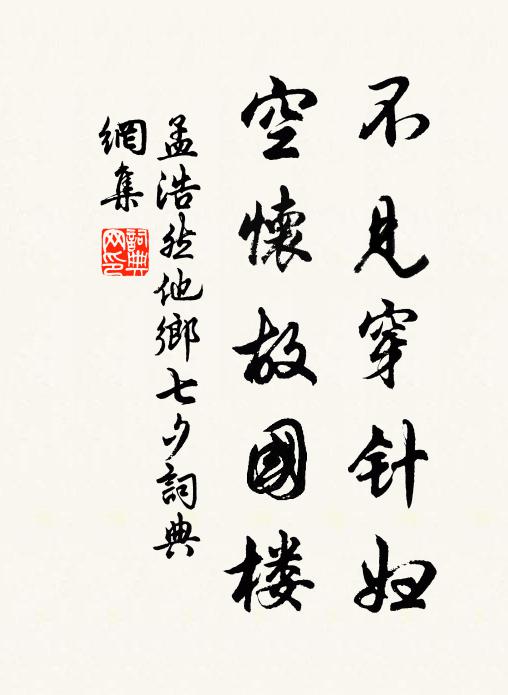 不见穿针妇
空懷故國楼
孟浩然他鄉七夕詞典
網集
詞典
网印